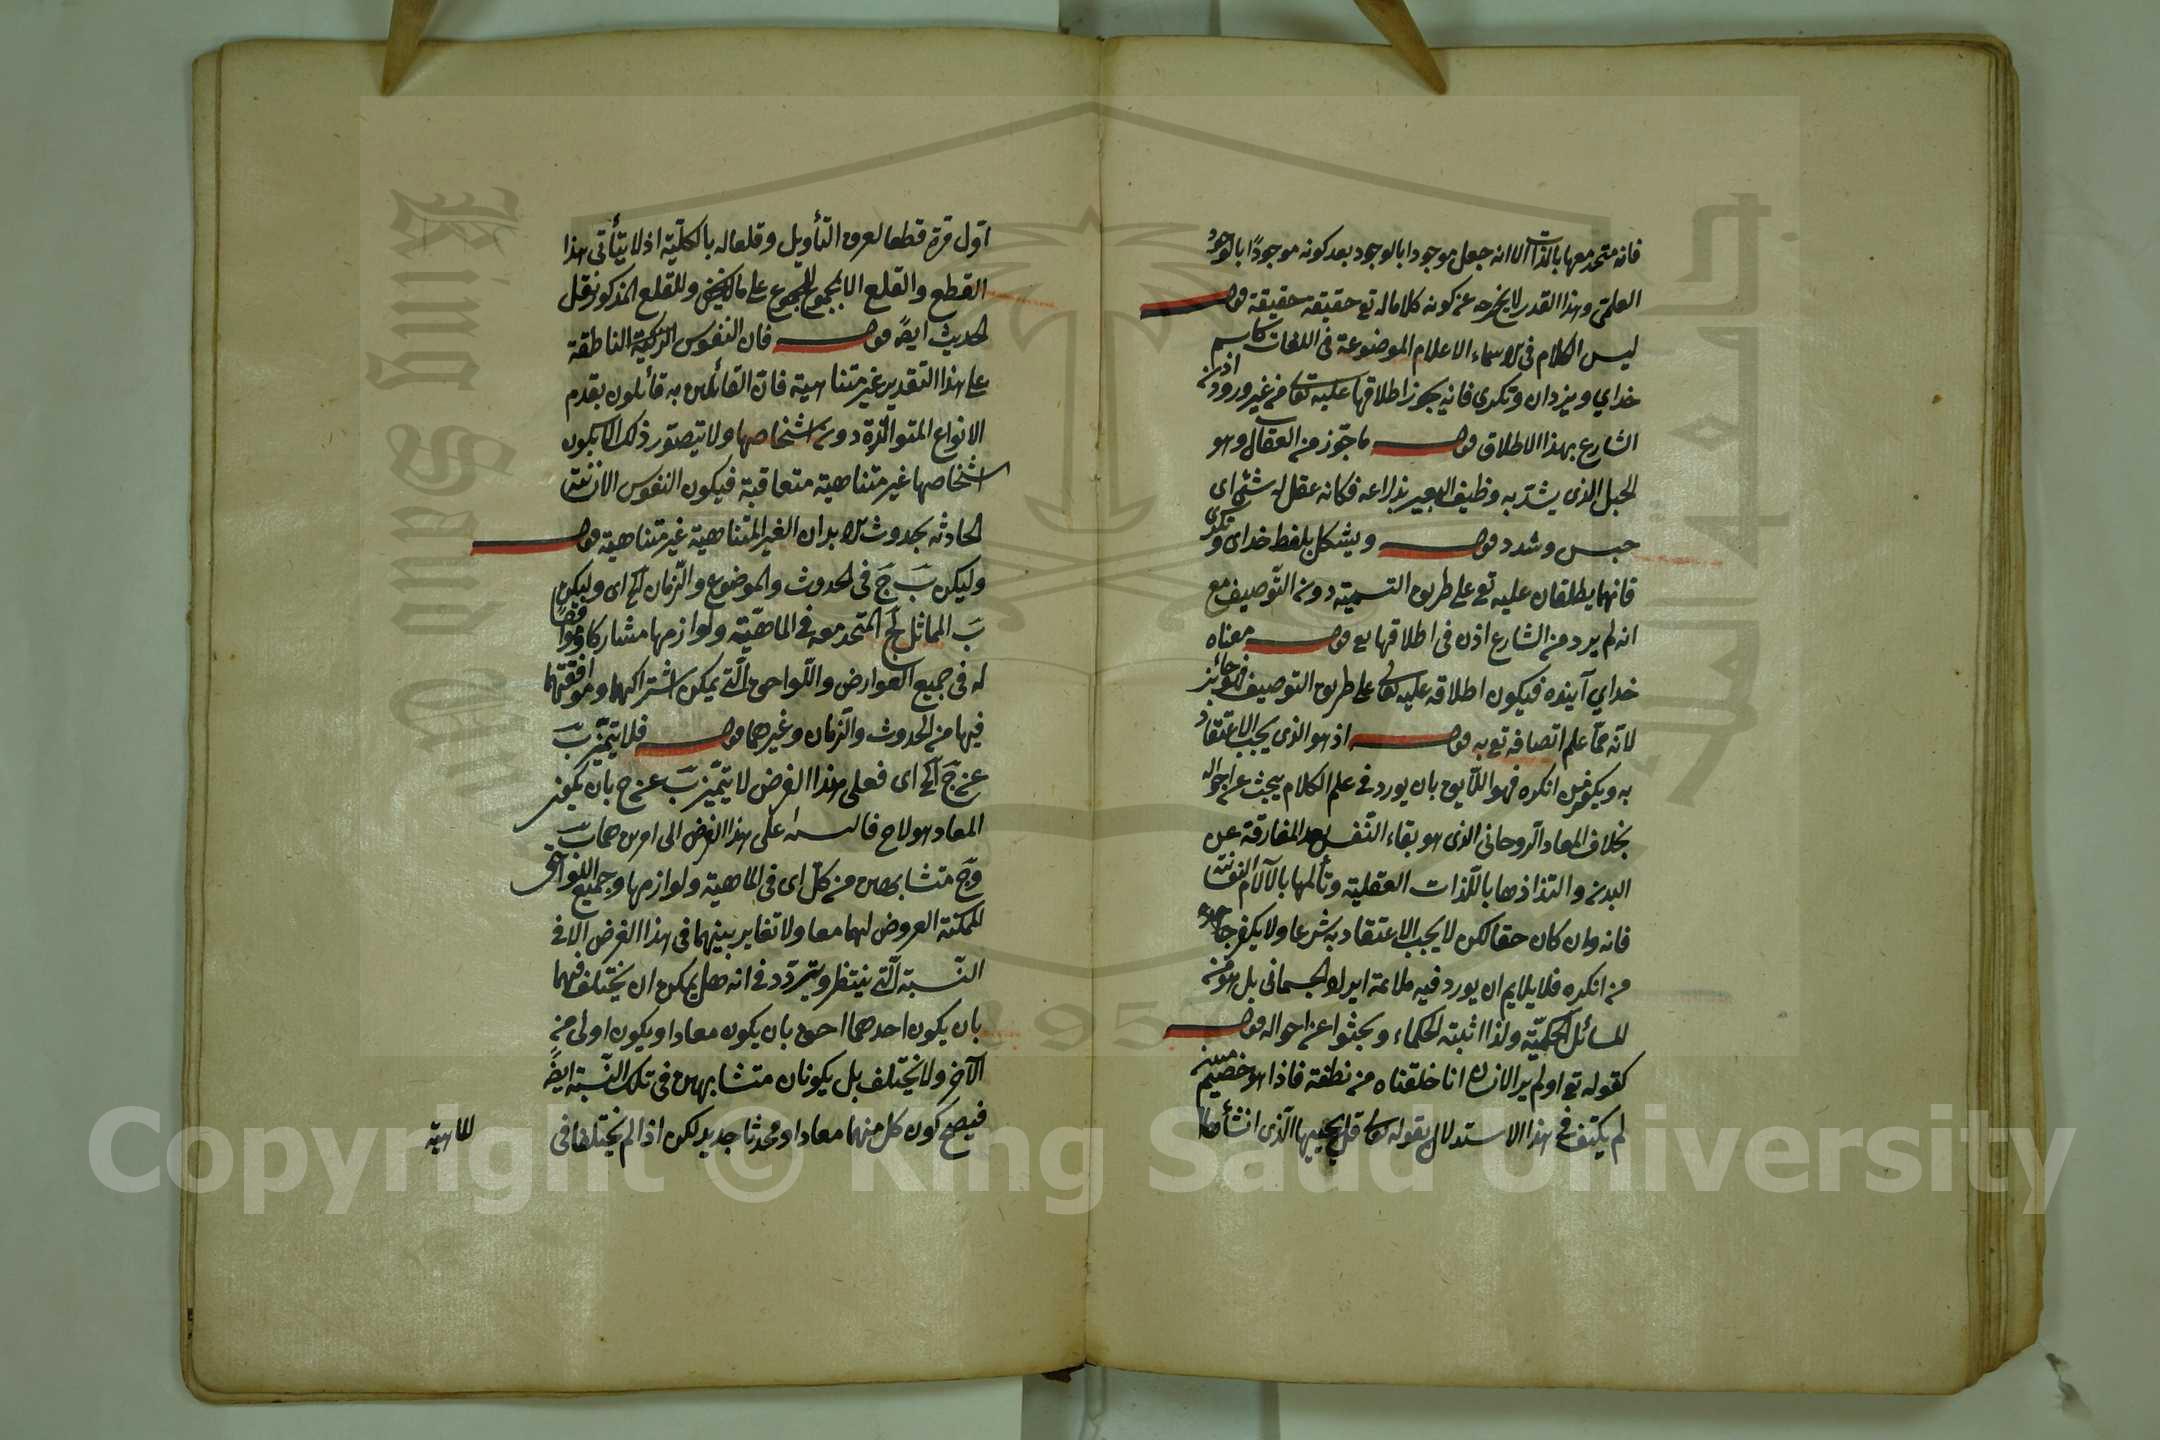 فانه متحد معها بالذات الا انه جعل موجودا بالوجود بعد كونه موجودا بالوجود
العلمى وهذا القدر لا يخرجه عن كونه كلاما له تع حقيقة حقيقة قوله
ليس الكلام فى الاسماء الاعلام الموضوعة فى اللغات كاسم
خداي ويزدان وتكرى فانه يجوز اطلاقها عليه تعالى من غير ورود اذن
الشارع بهذا الاطلاق قوله ماخوذ من العقال وهو
الحبل الذى يشد به وظيف البعير بذراعه فكانه عقل له شئ اى
حبس وشدد قوله ويشكل بلفظ خداى وتكرى
فانهما يطلقان عليه تع على طريق التسمية دون التوصيف مع
انه لم يرد من الشارع اذن فى اطلاقهما يع قوله معناه
خداي آينده فيكون اطلاقه عليه تعالى على طريق التوصيف جائز
لانه مما علم اتصافه تع به قوله اذ هو الذى يجب الاعتقاد
به ويكفر من انكره فهو اللايق بان يورد فى علم الكلام يبحث عن احواله
بخلاف المعاد الروحانى الذى هو بقاء النفس بعد المفارقة عن
البدن والتذاذها باللذات العقلية وتألمها بالآلام النفسانية
فانه وان كان حقا لكن لا يجب الاعتقاد به شرعا ولا يكفر جاحده
من انكره فلا يلايم ان يورد فيه ملائمة ايراد الجسمانى بل هو من
المسائل الحكمية ولذا اثبته الحكماء وبحثوا عن احواله قوله
كقوله تع اولم ير الانسان انا خلقناه من نطفة فاذا هو خصيم مبين
لم يكتف فى هذا الاستدلال بقوله تعالى قل يحييها الذى انشأها
اول مرة قطعا لعرق التأويل وقلعا له بالكلية اذ لا يتأتى هذا
القطع والقلع الا بمجموع المجموع على ما لا يخفى وللقلع المذكور نقل
الحديث ايضا قوله فان النفوس الزكية الناطقة
على هذا التقدير غير متناهية فان القائلين به قائلون بقدم
الانواع المتوالدة دون اشخاصها ولا يتصور ذلك الا بكون
اشخاصها غير متناهية متعاقبة فيكون النفوس الانسانية
الحادثه بحدوث الابدان الغير المتناهية غير متناهية قوله
وليكن بَ جَ فى الحدوث والموضوع والزمان الخ اى وليكن
بَ المماثل لجَ المتحد معه فى الماهية ولوازمها مشاركا وموافقا
له فى جميع العوارض واللواحق التى يمكن اشتراكهما وموافقتهما
فيها من الحدوث والزمان وغيرهما قوله فلا يتميز بَ
عن جَ الخ اى فعلى هذا الفرض لا يتميز بَ عن ج بان يكون
المعاد هو لا ج فالنسبة على هذا الفرض الى امرين هما بَ
وجَ متشابهين من كل اى فى الماهية ولوازمها وجميع اللواحق
الممكنة العروض لهما معا ولا تغاير بينهما فى هذا الفرض الا فى
النسبة التى ينتظر ويتردد فى انه هل يمكن ان يختلف فيهما
بان يكون احدهما احق بان يكون معادا ويكون اولى من
الآخر ولا يختلف بل يكونان متشابهين فى تلك النسبة ايضا
فيصح كون كل منهما معادا ومحدثا جديد لكن اذا لم يختلفا فى
الماهية
King Saud University
1957
Copyright © King Saud University